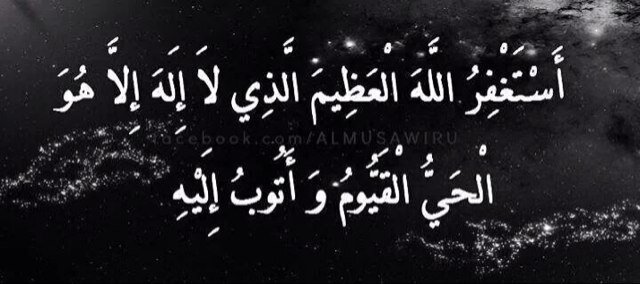 أَسْتَغْفِرُ اللَّهَ الْعَظِيمَ الَّذِي لاَ إِلَهَ إِلاَّ هُوَ
facebook.com/ALMUSAWIRU
الْحَيُّ الْقَيُّومُ وَ أَتُوبُ إِلَيْهِ